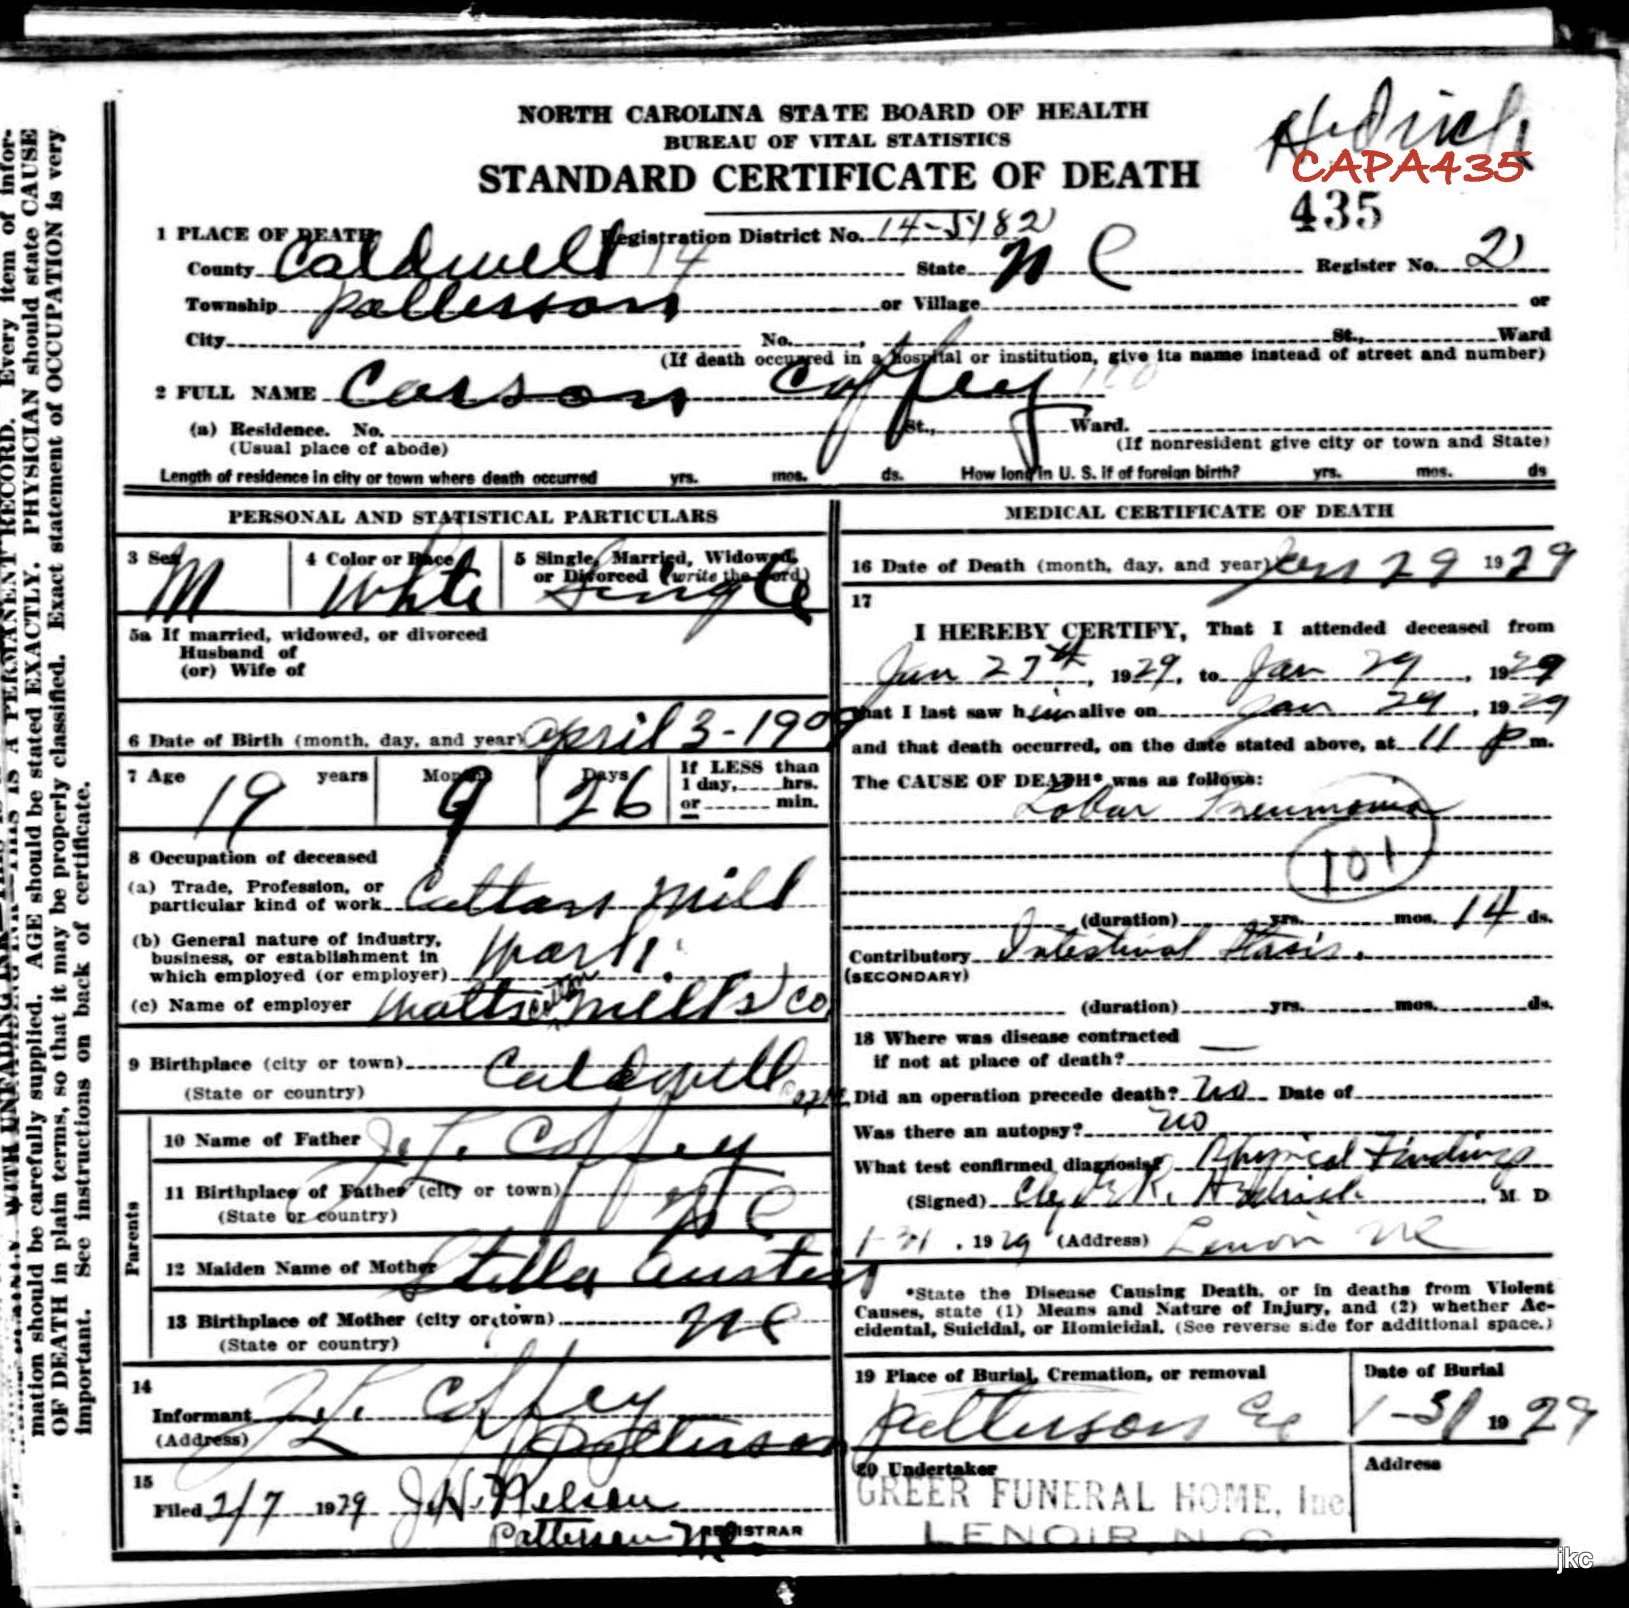 NORTH CAROLINA STATE BOARD OF HEALTH
BUREAU OF VITAL STATISTICS
STANDARD CERTIFICATE OF DEATH
Hedrick
CAPA435
435
1 PLACE OF DEATH Registration District No. 14-5482
County Caldwell 14 State N C Register No. 2
Township Patterson or Village or
City No. , St., Ward
(If death occurred in a hospital or institution, give its name instead of street and number)
2 FULL NAME Carson Coffey
(a) Residence. No. St., Ward.
(Usual place of abode) (If nonresident give city or town and State)
Length of residence in city or town where death occurred yrs. mos. ds. How long in U. S. if of foreign birth? yrs. mos. ds
PERSONAL AND STATISTICAL PARTICULARS
3 Sex M 4 Color or Race White 5 Single, Married, Widowed, or Divorced (write the word) Single
5a If married, widowed, or divorced
Husband of
(or) Wife of
6 Date of Birth (month, day, and year) April 3 - 1909
7 Age 19 years Months 9 Days 26 If LESS than 1 day, hrs. or min.
8 Occupation of deceased
(a) Trade, Profession, or
particular kind of work Cotton Mill
(b) General nature of industry,
business, or establishment in
which employed (or employer) Work
(c) Name of employer Watts Cotton Mills Co
9 Birthplace (city or town) Caldwell
(State or country)
Parents
10 Name of Father J. L. Coffey
11 Birthplace of Father (city or town) N C
(State or country)
12 Maiden Name of Mother Stella Austin
13 Birthplace of Mother (city or town) N C
(State or country)
14
Informant J. L. Coffey
(Address) Patterson
15
Filed 2/7 1929 J. H. Nelson
Patterson N.C. REGISTRAR
MEDICAL CERTIFICATE OF DEATH
16 Date of Death (month, day, and year) Jan 29 1929
17
I HEREBY CERTIFY, That I attended deceased from
Jan 27th, 1929, to Jan 29, 1929
that I last saw him alive on Jan 29, 1929
and that death occurred, on the date stated above, at 11 P m.
The CAUSE OF DEATH* was as follows:
Lobar Pneumonia
101
(duration) yrs. mos. 14 ds.
Contributory Intestinal Stasis.
(SECONDARY)
(duration) yrs. mos. ds.
18 Where was disease contracted
if not at place of death? —
Did an operation precede death? No Date of
Was there an autopsy? No
What test confirmed diagnosis? Physical Findings
(Signed) Clyde R. Hedrick, M. D.
1-31, 1929 (Address) Lenoir NC
*State the Disease Causing Death, or in deaths from Violent
Causes, state (1) Means and Nature of Injury, and (2) whether Ac-
cidental, Suicidal, or Homicidal. (See reverse side for additional space.)
19 Place of Burial, Cremation, or removal Date of Burial
Patterson 1-31 1929
20 Undertaker Address
GREER FUNERAL HOME, Inc.
LENOIR, N. C.
mation should be carefully supplied. AGE should be stated EXACTLY. PHYSICIAN should state CAUSE
OF DEATH in plain terms, so that it may be properly classified. Exact statement of OCCUPATION is very
important. See instructions on back of certificate.
jkc